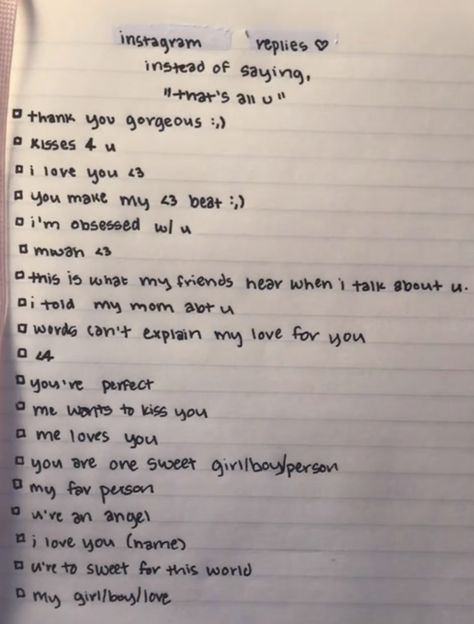 instagram replies ♡
instead of saying,
"that's all u"
□ thank you gorgeous :,)
□ kisses 4 u
□ i love you <3
□ you make my <3 beat :,)
□ i'm obsessed w/ u
□ mwah <3
□ this is what my friends hear when i talk about u.
□ i told my mom abt u
□ words can't explain my love for you
□ <4
□ you're perfect
□ me wants to kiss you
□ me loves you
□ you are one sweet girl/boy/person
□ my fav person
□ u're an angel
□ i love you (name)
□ u're to sweet for this world
□ my girl/boy/love